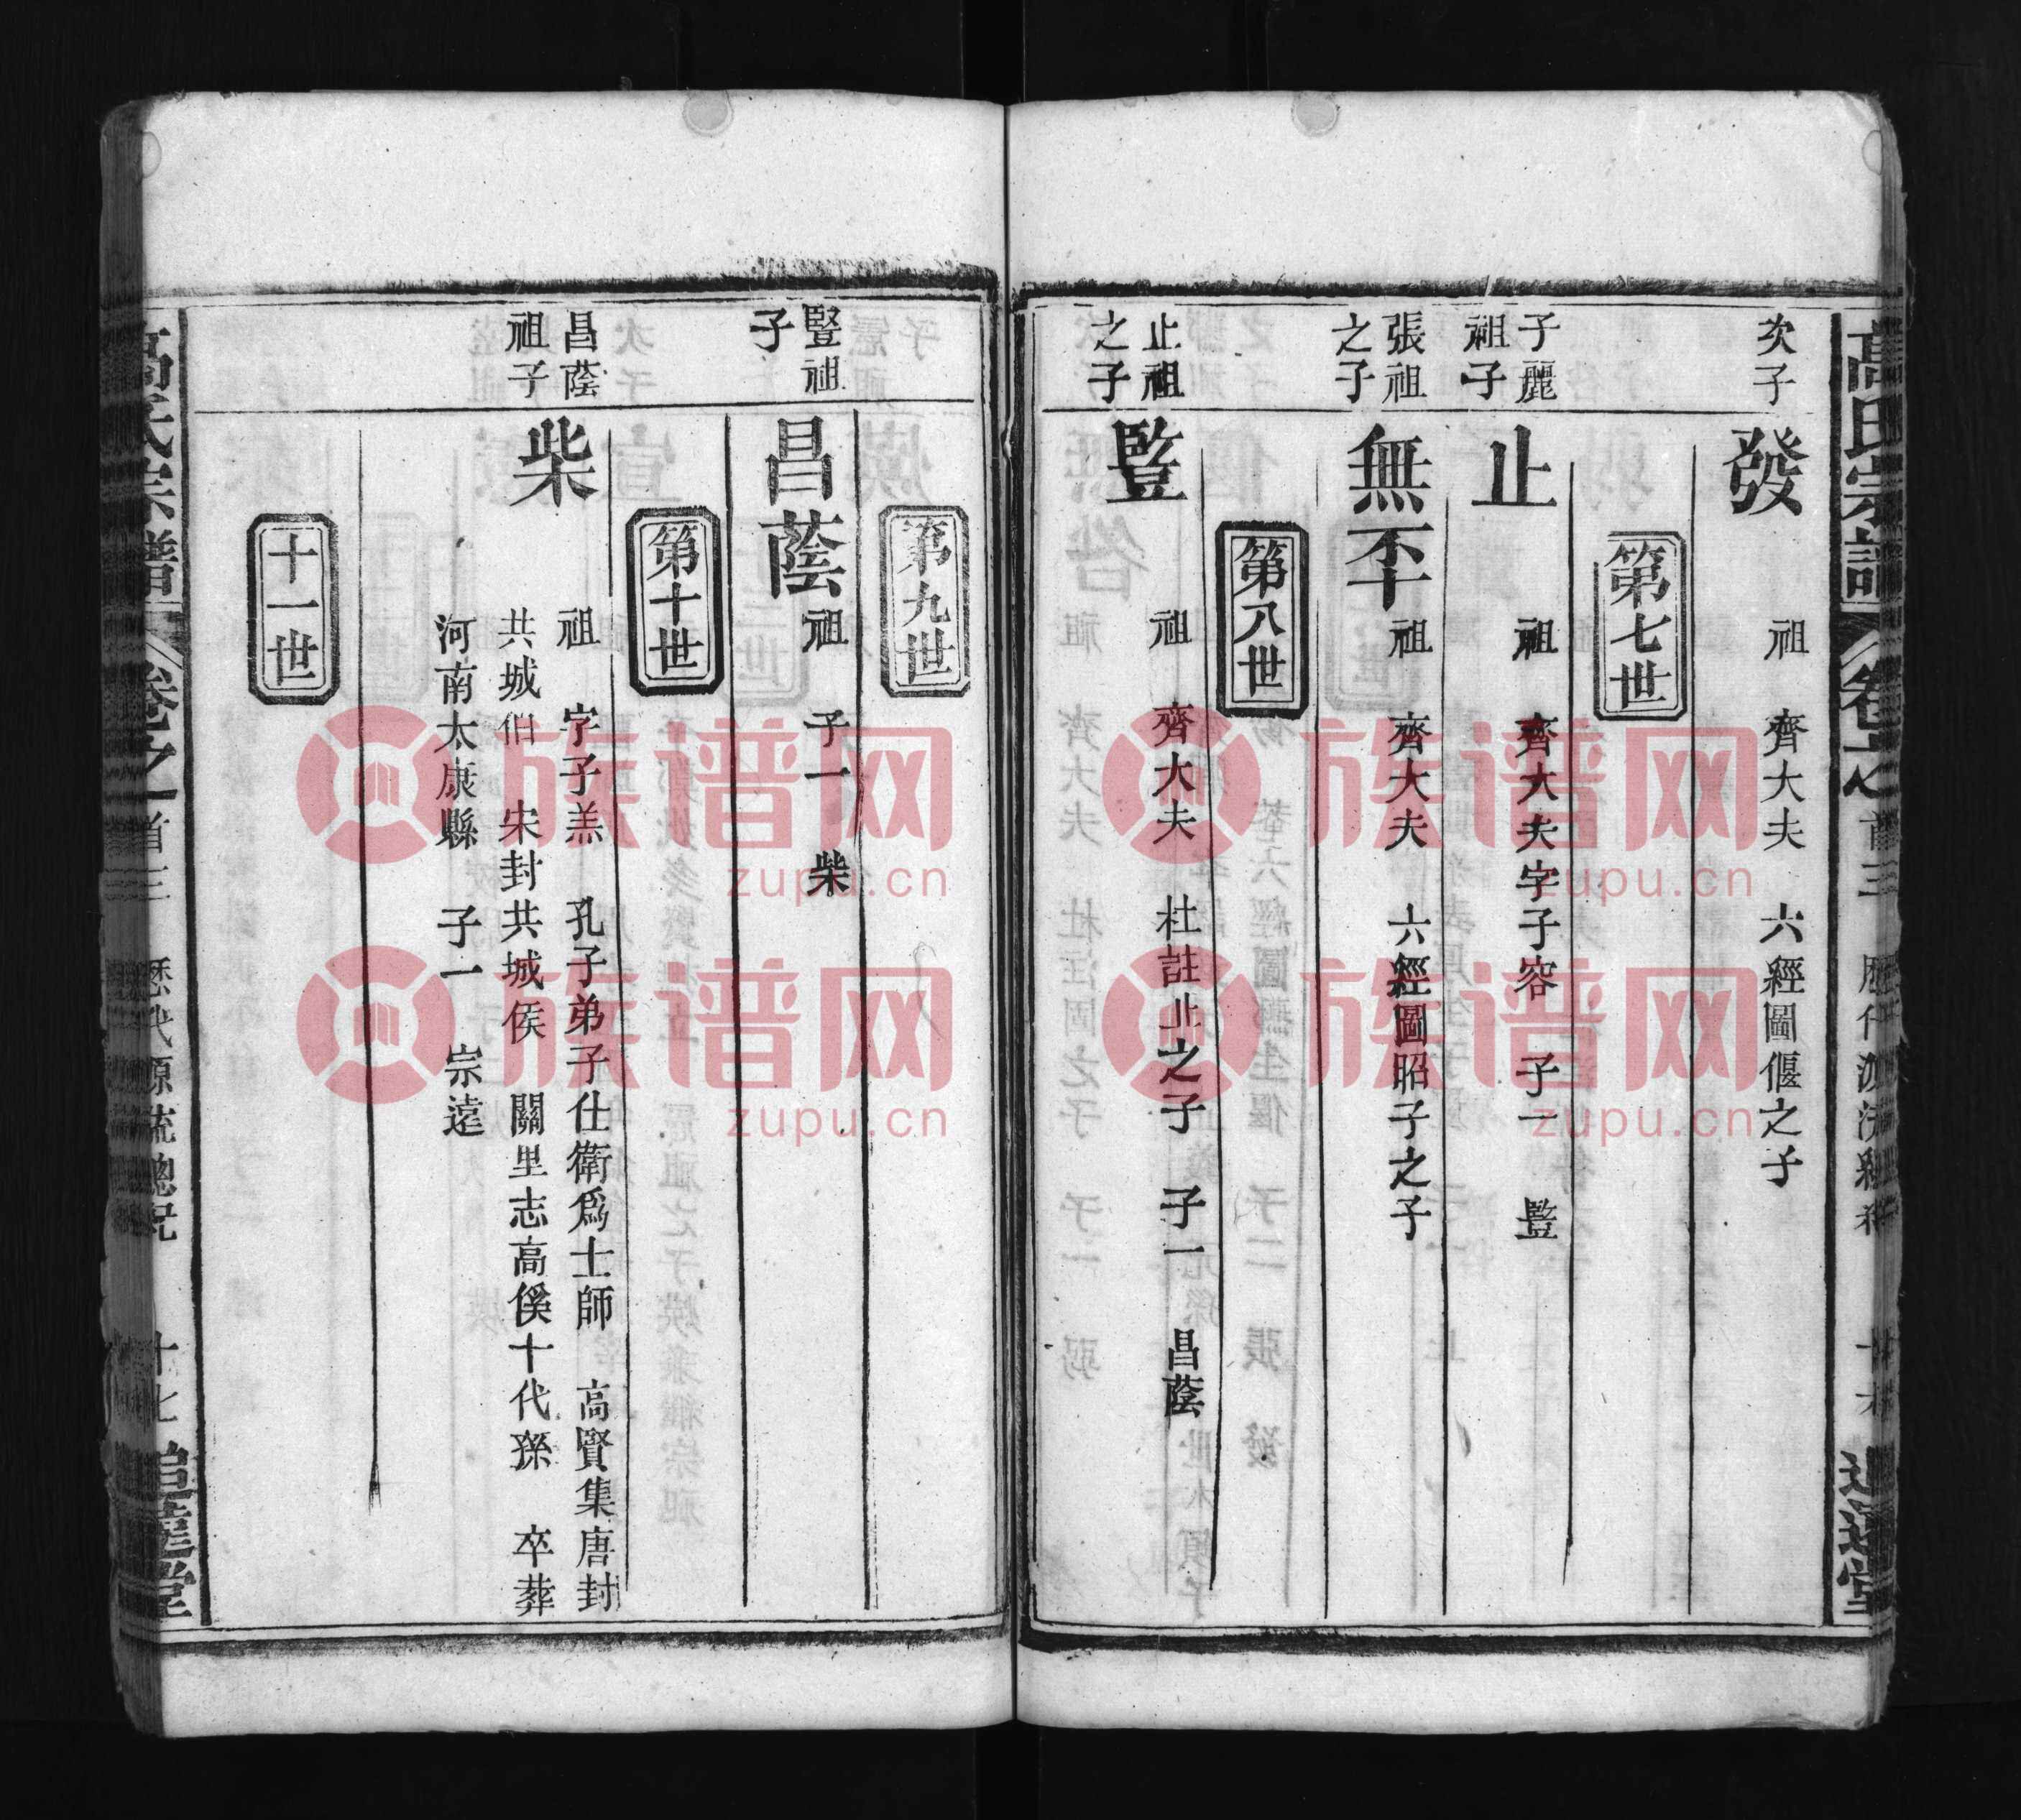 高氏宗譜
卷之
首三
十六
追遠堂
次子
發
祖 齊大夫 六經圖偃之子
第七世
子麗
祖子
止
祖 齊大夫字子容 子一 豎
張祖
之子
無㔻
祖 齊大夫 六經圖昭子之子
第八世
止祖
之子
豎
祖 齊大夫 杜註止之子 子一 昌蔭
第九世
豎祖
子
昌蔭
祖 子一 柴
第十世
昌蔭
祖子
柴
祖 字子羔 孔子弟子仕衛爲士師 高賢集唐封
共城伯 宋封共城侯 闕里志高傒十代孫 卒葬
河南太康縣 子一 宗遠
十一世
高氏宗譜
卷之
首三
歷代源流總況
十七
追遠堂
族谱网
zupu.cn
族谱网
zupu.cn
族谱网
zupu.cn
族谱网
zupu.cn